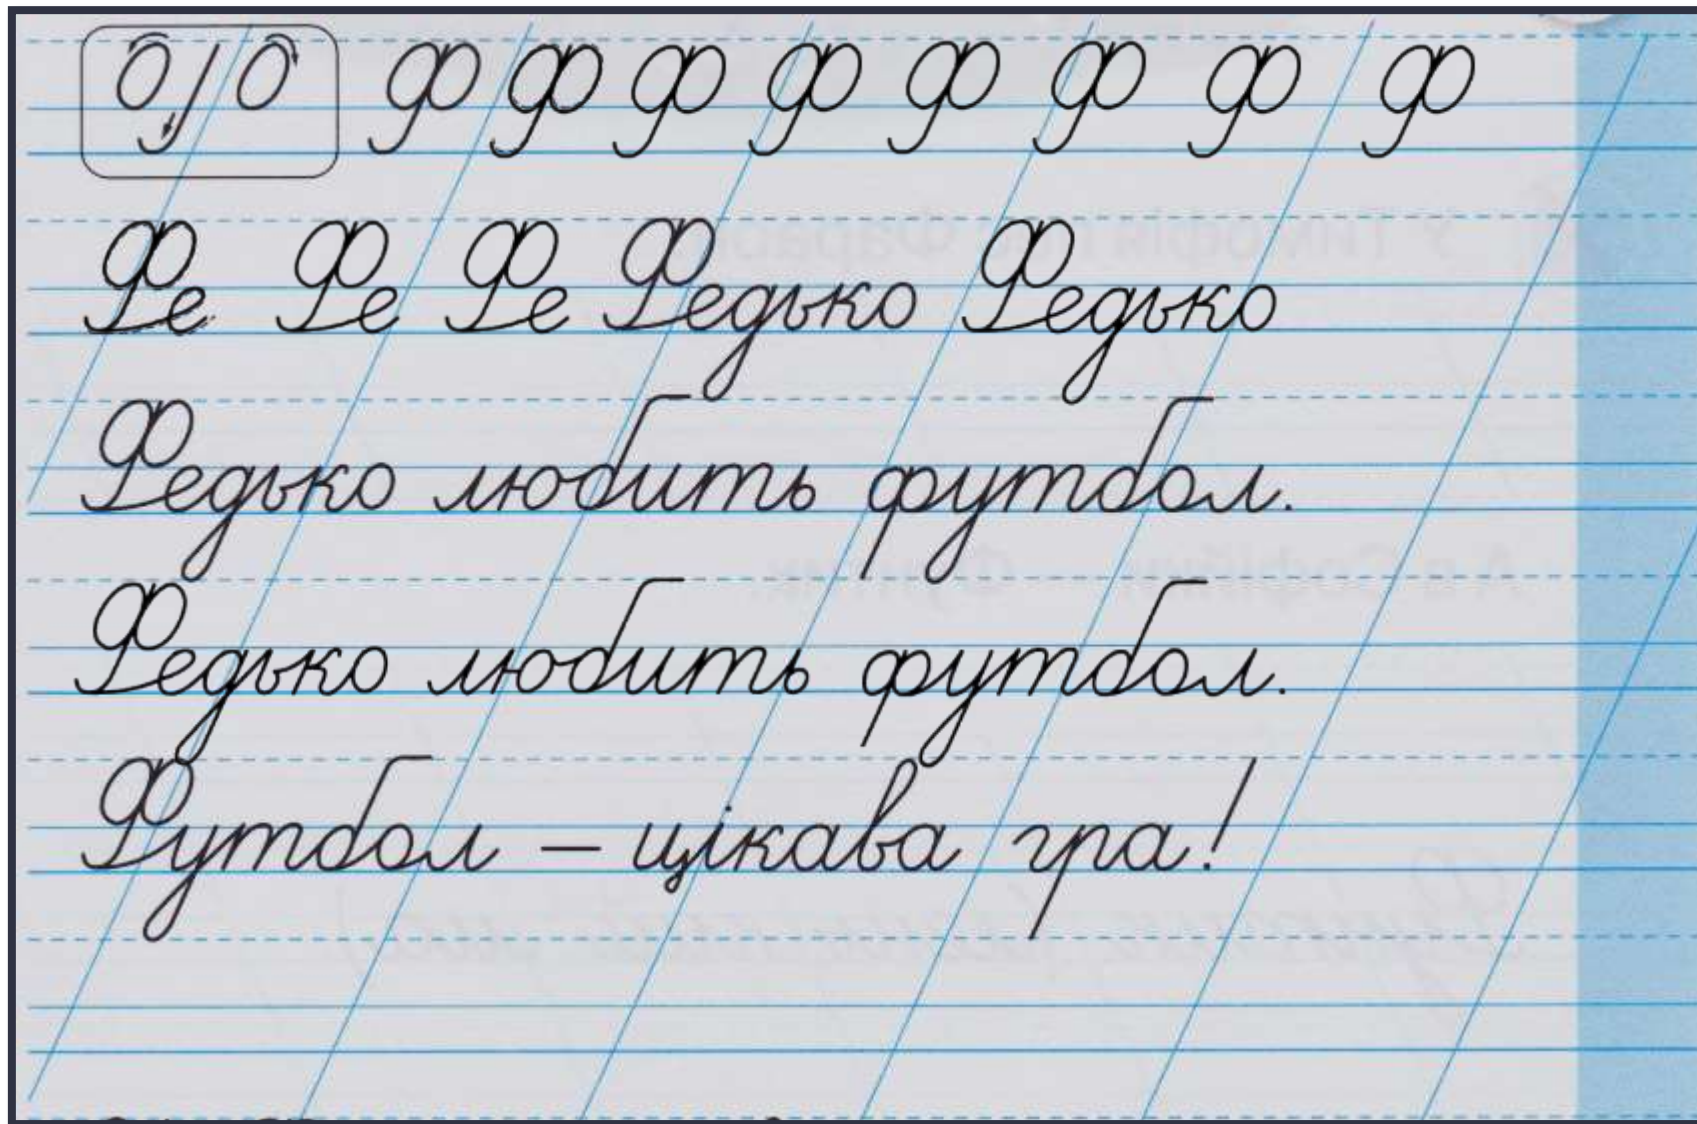 Ф Ф Ф Ф Ф Ф Ф Ф
Фе Фе Фе Федько Федько
Федько любить футбол.
Федько любить футбол.
Футбол – цікава гра!